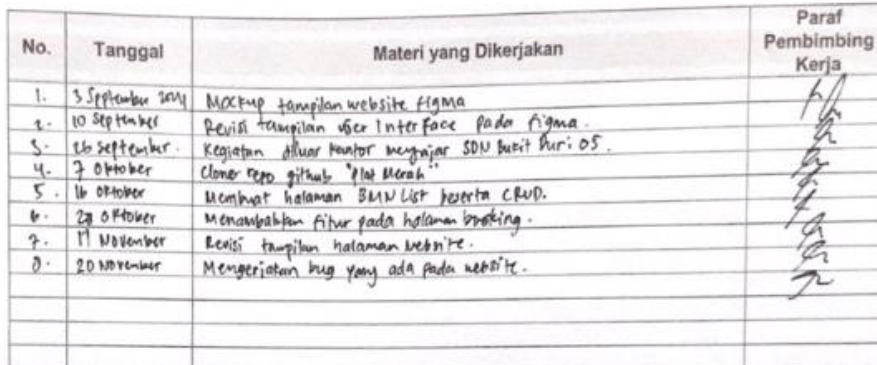 No. Tanggal Materi yang Dikerjakan Paraf Pembimbing Kerja
1. 3 September 2024 Mockup tampilan website figma
2. 10 September Revisi tampilan User Interface pada figma.
3. 26 September. Kegiatan diluar kantor mengajar SDN Bukit Duri 05.
4. 7 Oktober Clone repo github "Plat Merah"
5. 16 Oktober Membuat halaman BMN List beserta CRUD.
6. Oktober Menambahkan fitur pada halaman booking.
7. 11 November Revisi tampilan halaman website.
8. 20 November Mengerjakan bug yang ada pada website.